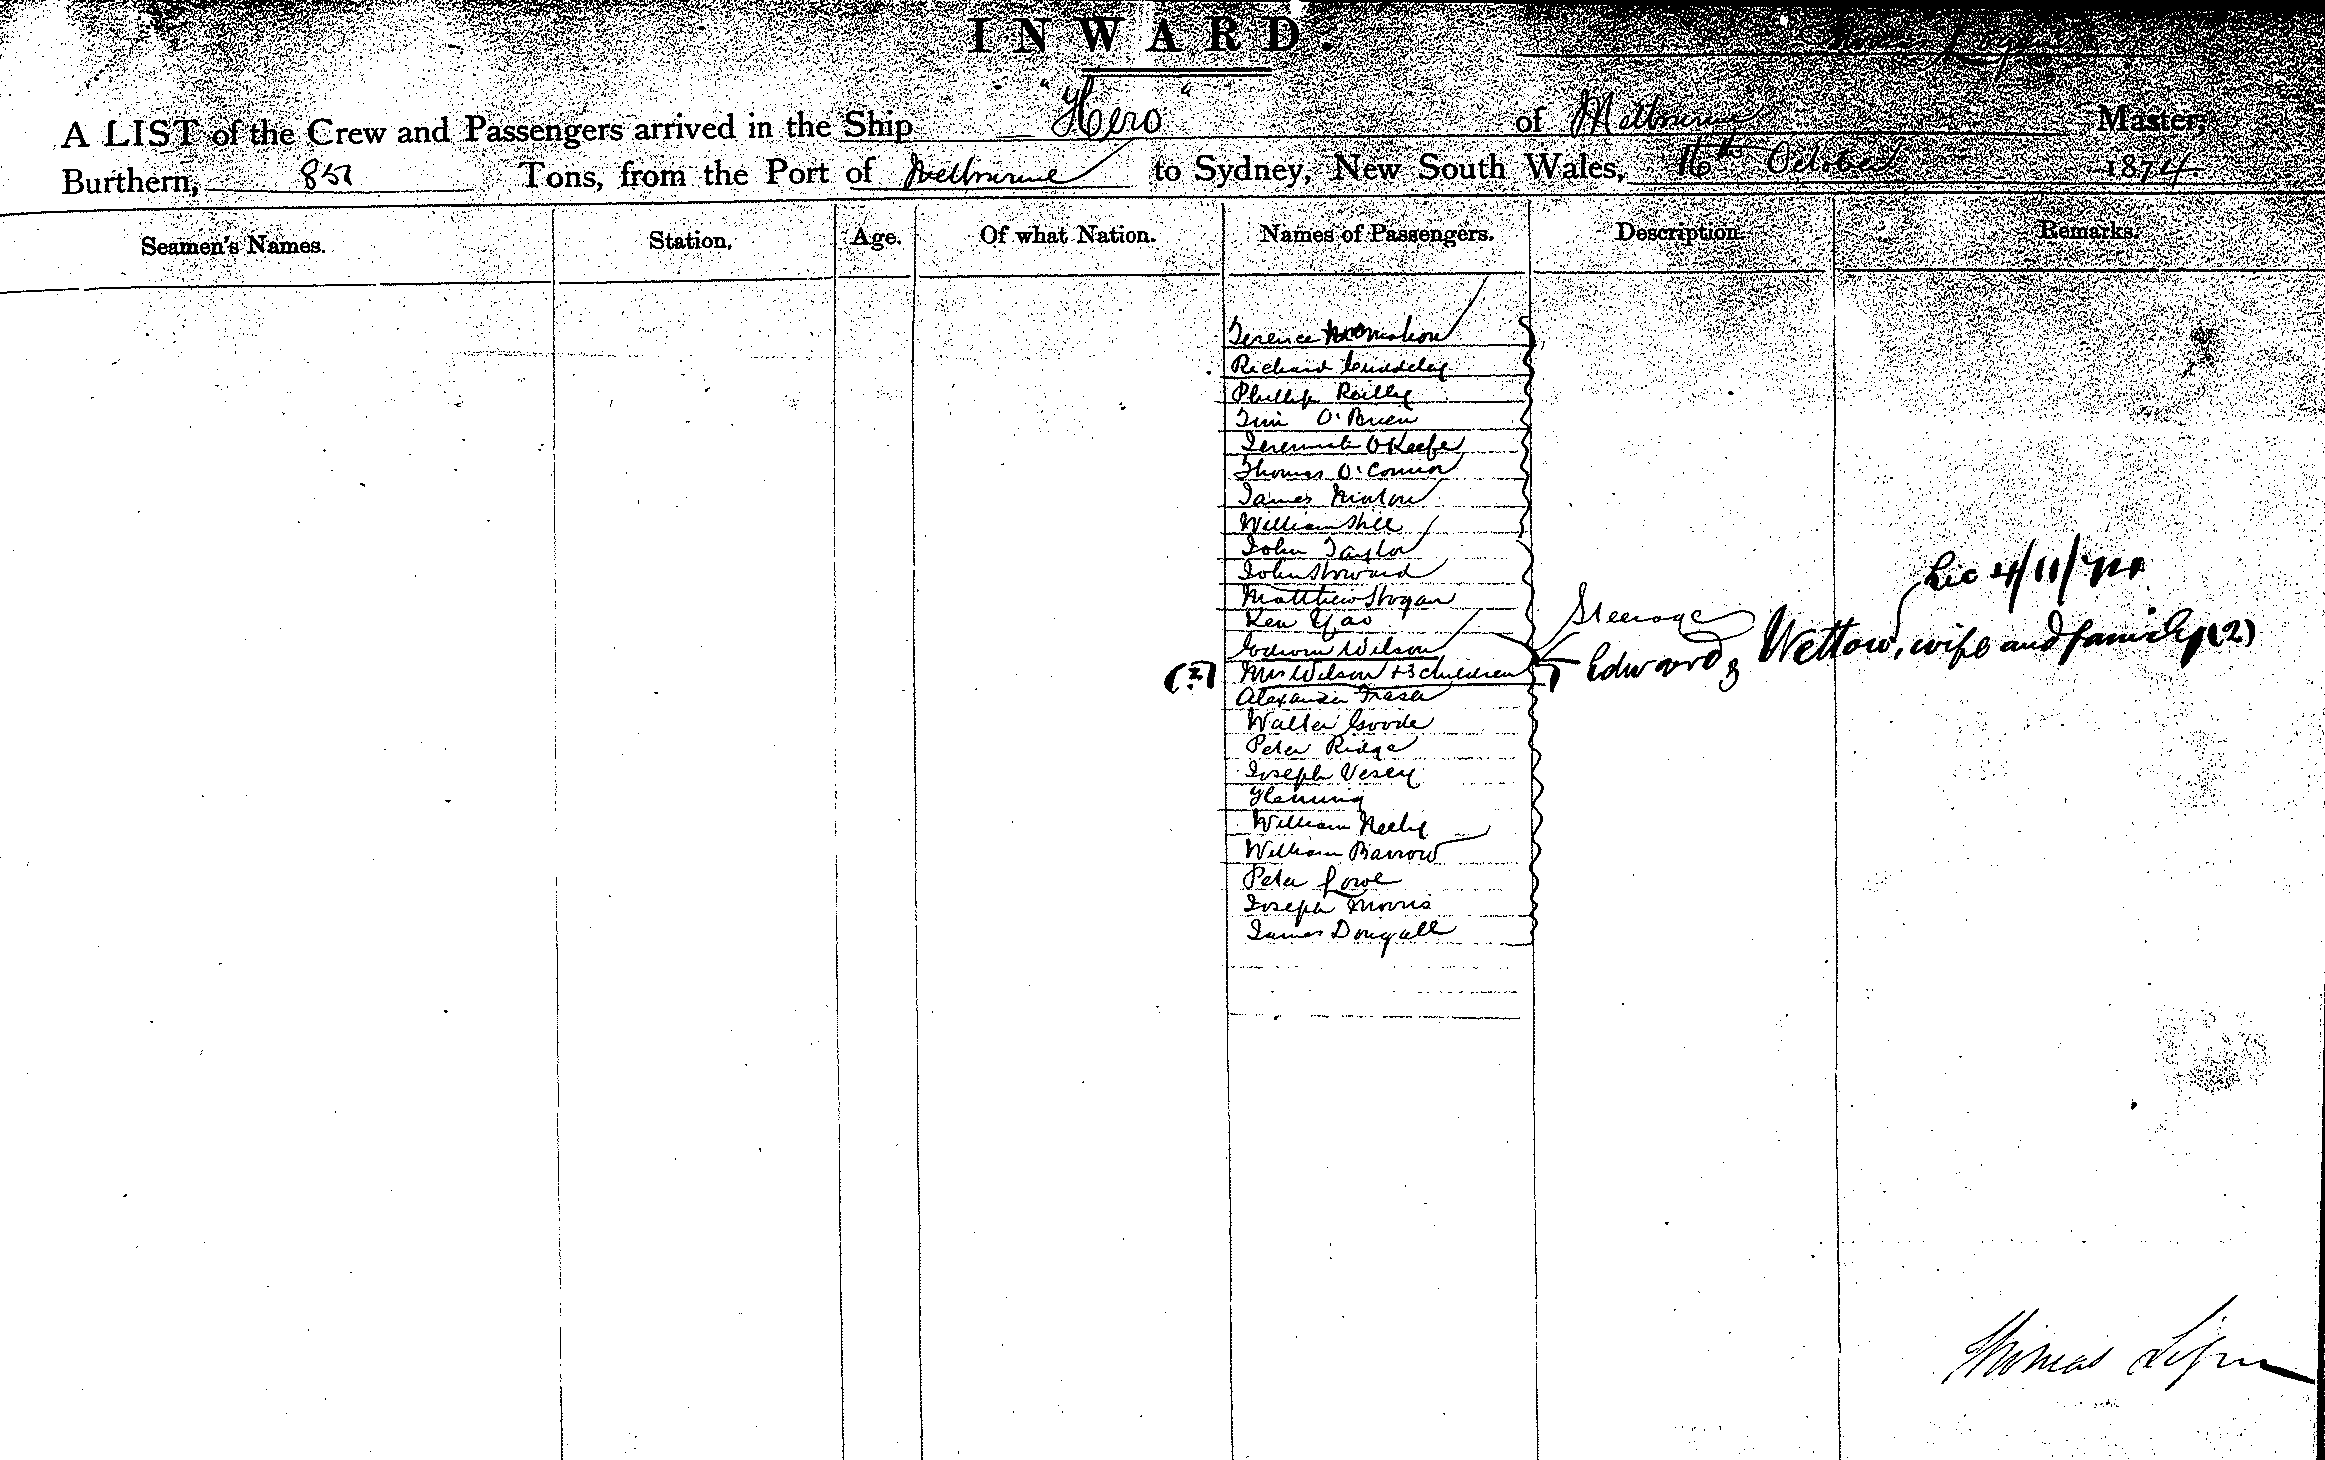 INWARD.
A LIST of the Crew and Passengers arrived in the Ship "Hero" of Melbourne Master,
Burthern, 851 Tons, from the Port of Melbourne to Sydney, New South Wales, 16th October 1874.
Seamen's Names. Station. Age. Of what Nation. Names of Passengers. Description. Remarks.
Terence McMahon
Richard
Phillip Reilly
Tim O'Brien
Jeremiah O'Keefe
Thomas O'Connor
James
William Hill
John Taylor
John Howard
Matthew Hogan
Ken Yao
Steerage
Edwin Wilson
Mrs Wilson + 3 children
(?) Edward Wettow, wife and family (2)
Alexander Fraser
Walter Goode
Peter Ridge
Joseph Vesey
Fleming
William Neely
William Barrow
Peter Lowe
Joseph Morris
James Dougall
Thomas